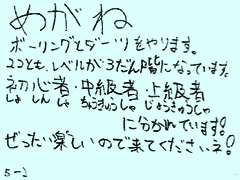 めがね
ボーリングとダーツをやります。
2コとも、レベルが3だん階になっています。
初心者・中級者・上級者
しょしんしゃ ちゅうきゅうしゃ じょうきゅうしゃ
に分かれています!
ぜったい楽しいので来てくださいネ!
5-2